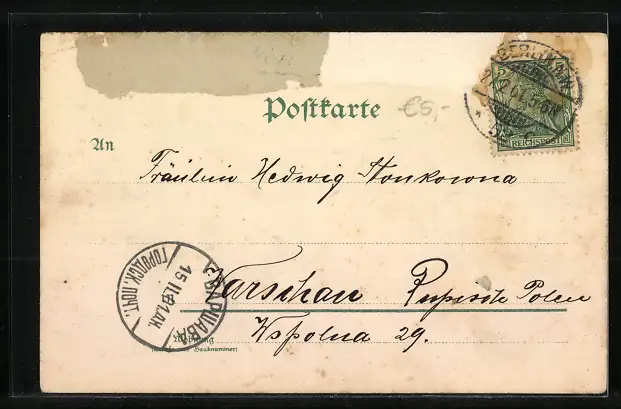 Postkarte
€5,-
BERLIN
REICHSPOST
An
Fräulein Hedwig Stonkowna
ГОРОДСК. ПОЧТ.
ВАРШАВА
15 II
Warschau Russisch Polen
Wspolna 29.
Wohnung